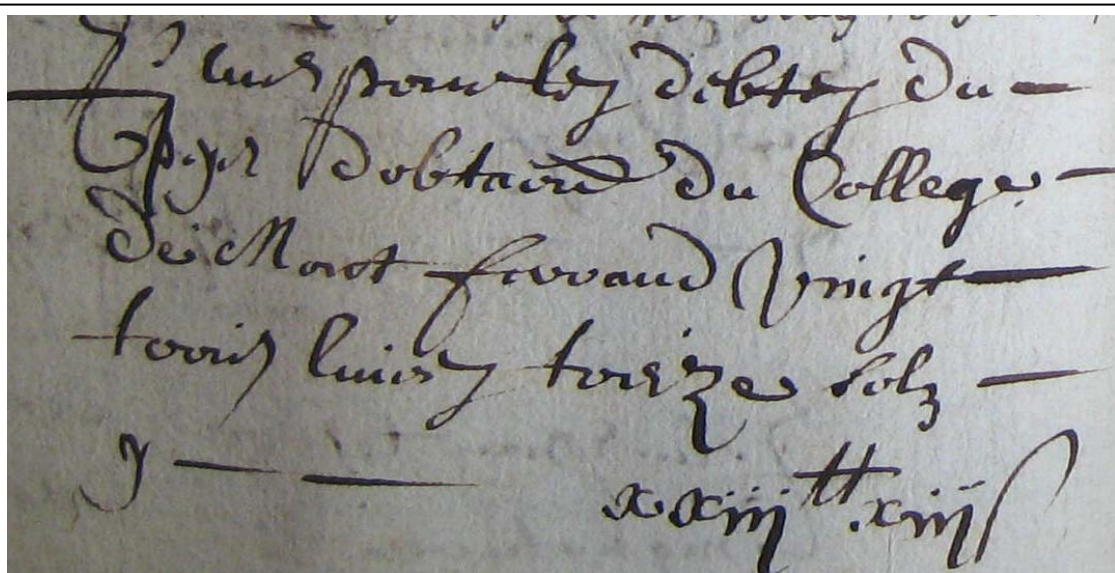 pour les debtes du
du College
de Montferrand Vingt
trois livres treize solz
xxiij tt xiij s